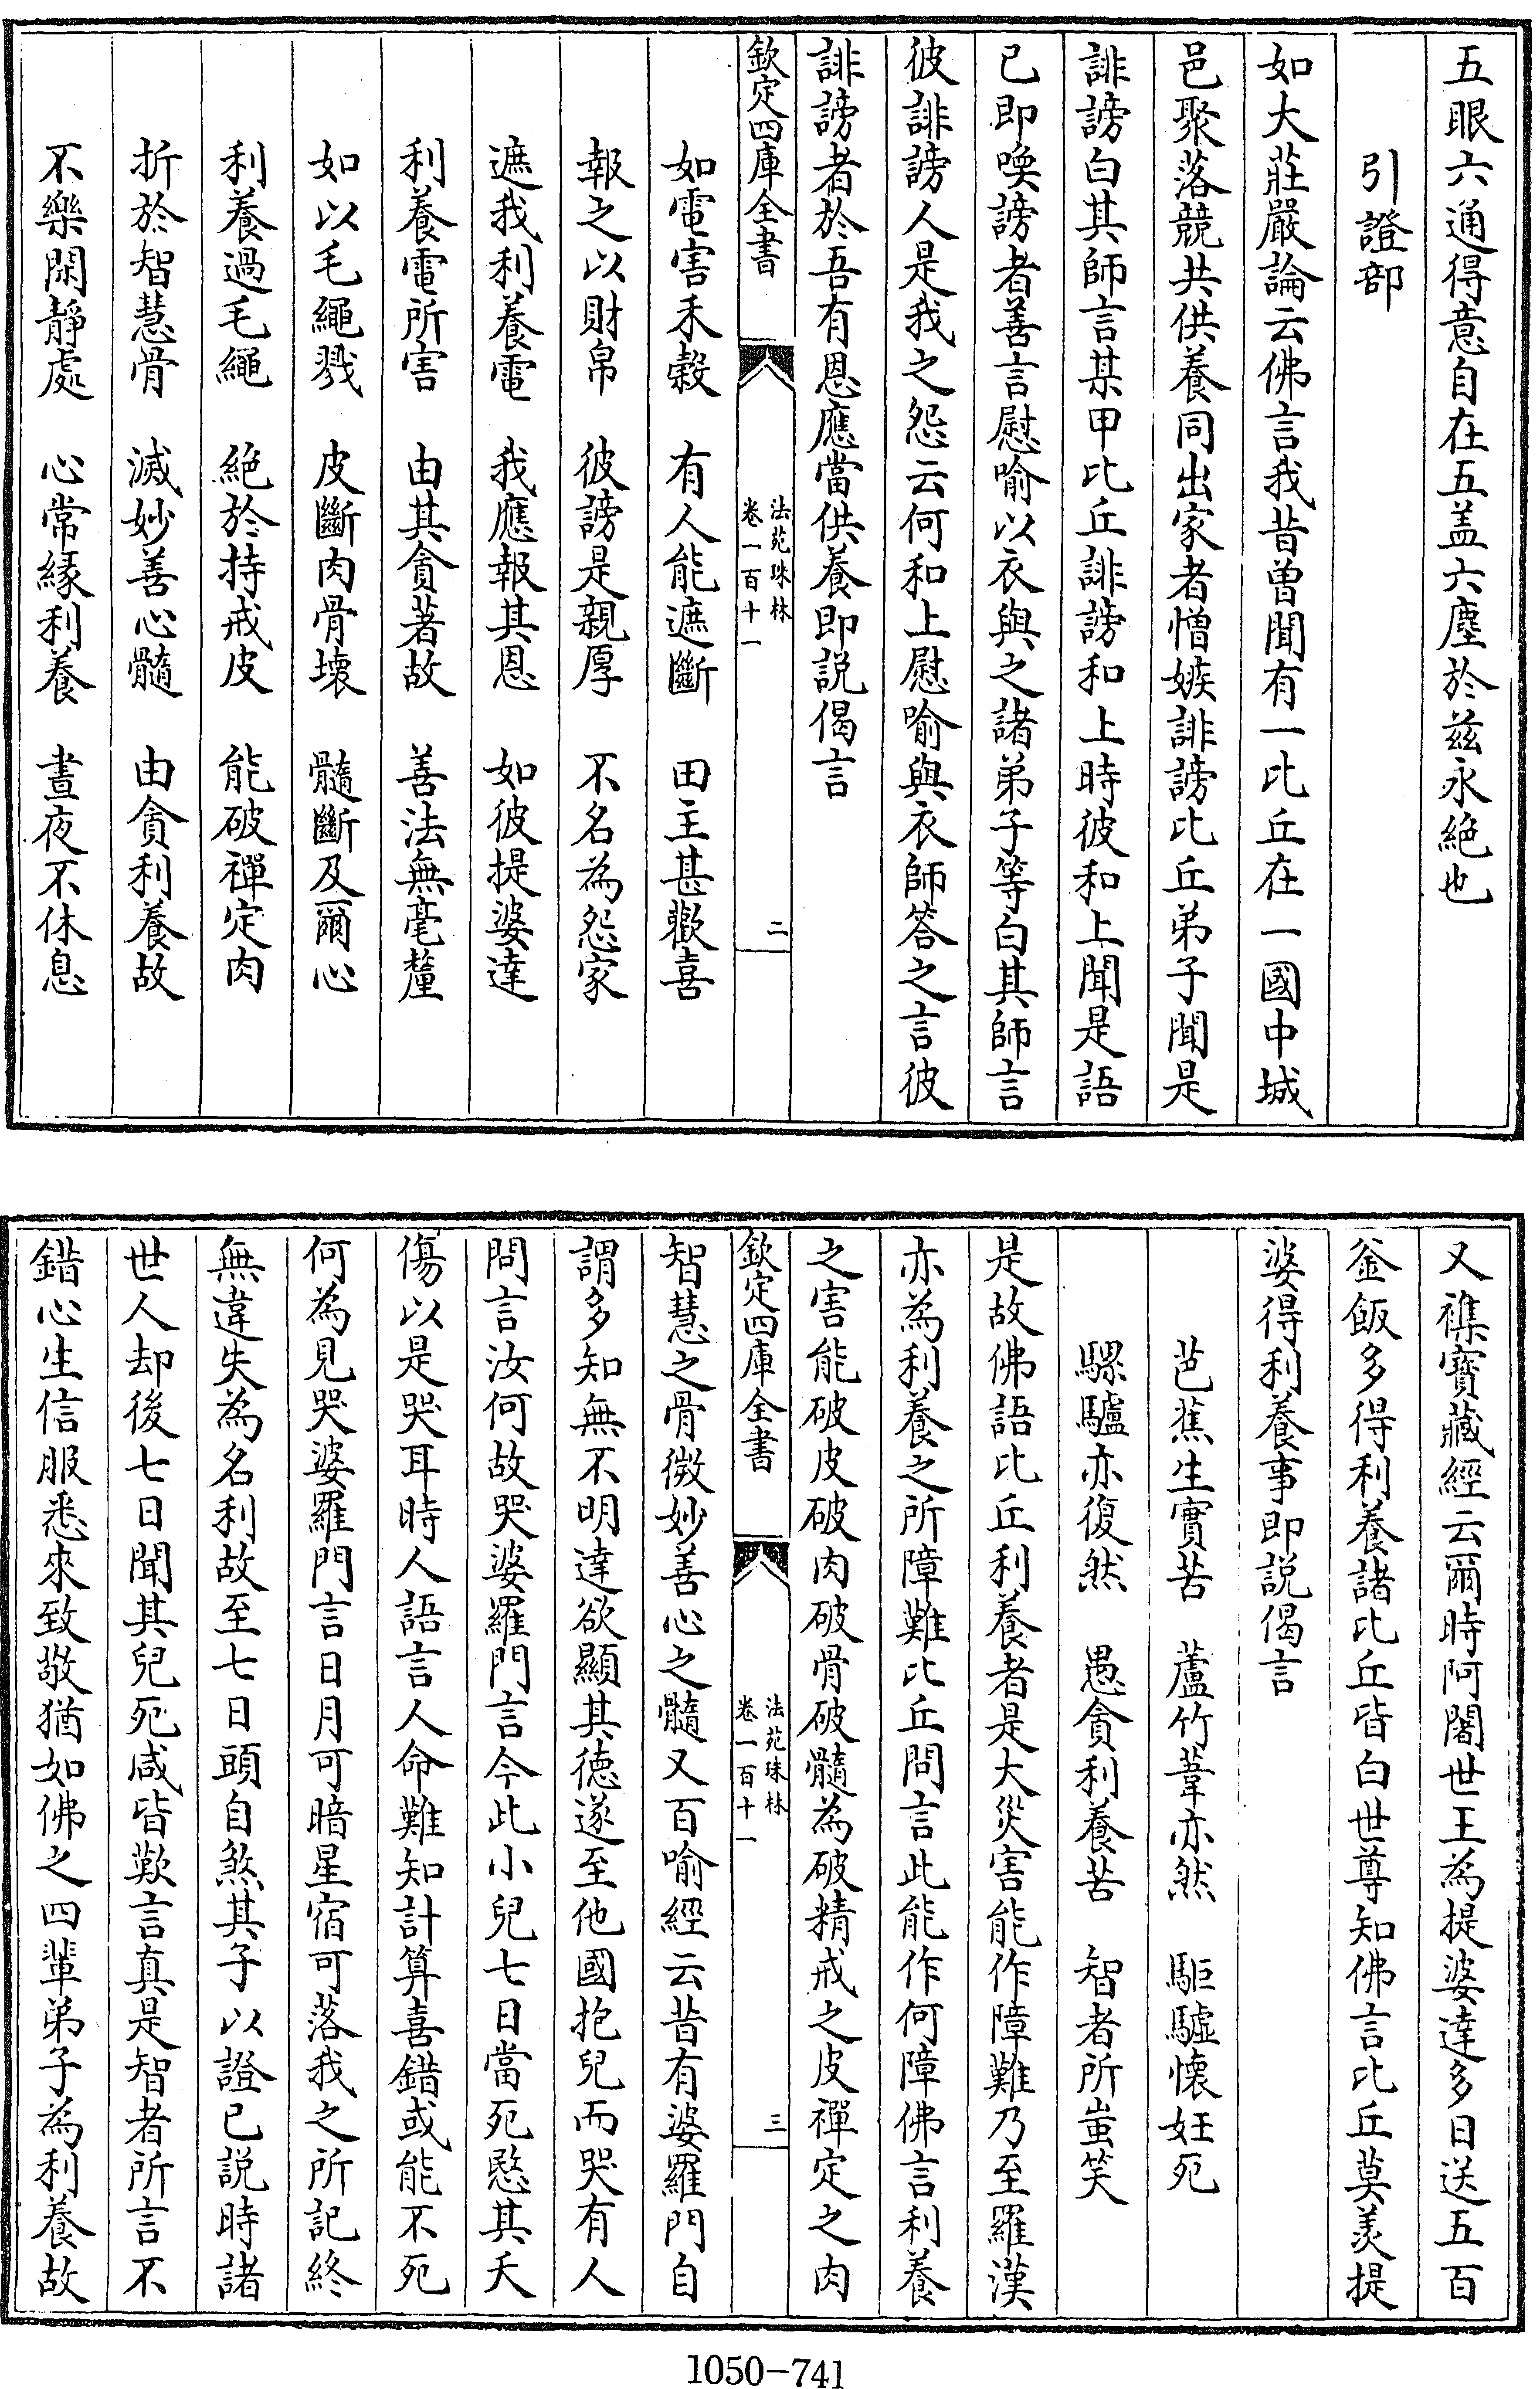 五眼六通得意自在五盖六塵於兹永絶也
引證部
如大莊嚴論云佛言我昔曾聞有一比丘在一國中城
邑聚落競共供養同出家者憎嫉誹謗比丘弟子聞是
誹謗白其師言某甲比丘誹謗和上時彼和上聞是語
已即喚謗者善言慰喻以衣與之諸弟子等白其師言
彼誹謗人是我之怨云何和上慰喻與衣師答之言彼
誹謗者於吾有恩應當供養即説偈言
欽定四庫全書 法苑珠林 卷一百十一 二
如雹害禾穀 有人能遮斷 田主甚歡喜
報之以財帛 彼謗是親厚 不名為怨家
遮我利養雹 我應報其恩 如彼提婆達
利養雹所害 由其貪著故 善法無毫釐
如以毛繩戮 皮斷肉骨壊 髓斷及爾心
利養過毛繩 絶於持戒皮 能破禪定肉
折於智慧骨 滅妙善心髓 由貪利養故
不樂閑靜處 心常緣利養 晝夜不休息
又襍寶藏經云爾時阿闍世王為提婆達多日送五百
釜飯多得利養諸比丘皆白世尊知佛言比丘莫羨提
婆得利養事即説偈言
芭蕉生實苦 蘆竹葦亦然 駏驉懷妊死
騾驢亦復然 愚貪利養苦 智者所蚩笑
是故佛語比丘利養者是大災害能作障難乃至羅漢
亦為利養之所障難比丘問言此能作何障佛言利養
之害能破皮破肉破骨破髓為破精戒之皮禪定之肉
欽定四庫全書 法苑珠林 卷一百十一 三
智慧之骨微妙善心之髓又百喻經云昔有婆羅門自
謂多知無不明達欲顯其徳遂至他國抱兒而哭有人
問言汝何故哭婆羅門言今此小兒七日當死愍其夭
傷以是哭耳時人語言人命難知計算喜錯或能不死
何為見哭婆羅門言日月可暗星宿可落我之所記終
無違失為名利故至七日頭自煞其子以證已説時諸
世人却後七日聞其兒死咸皆歎言真是智者所言不
錯心生信服悉來致敬猶如佛之四輩弟子為利養故
1050-741